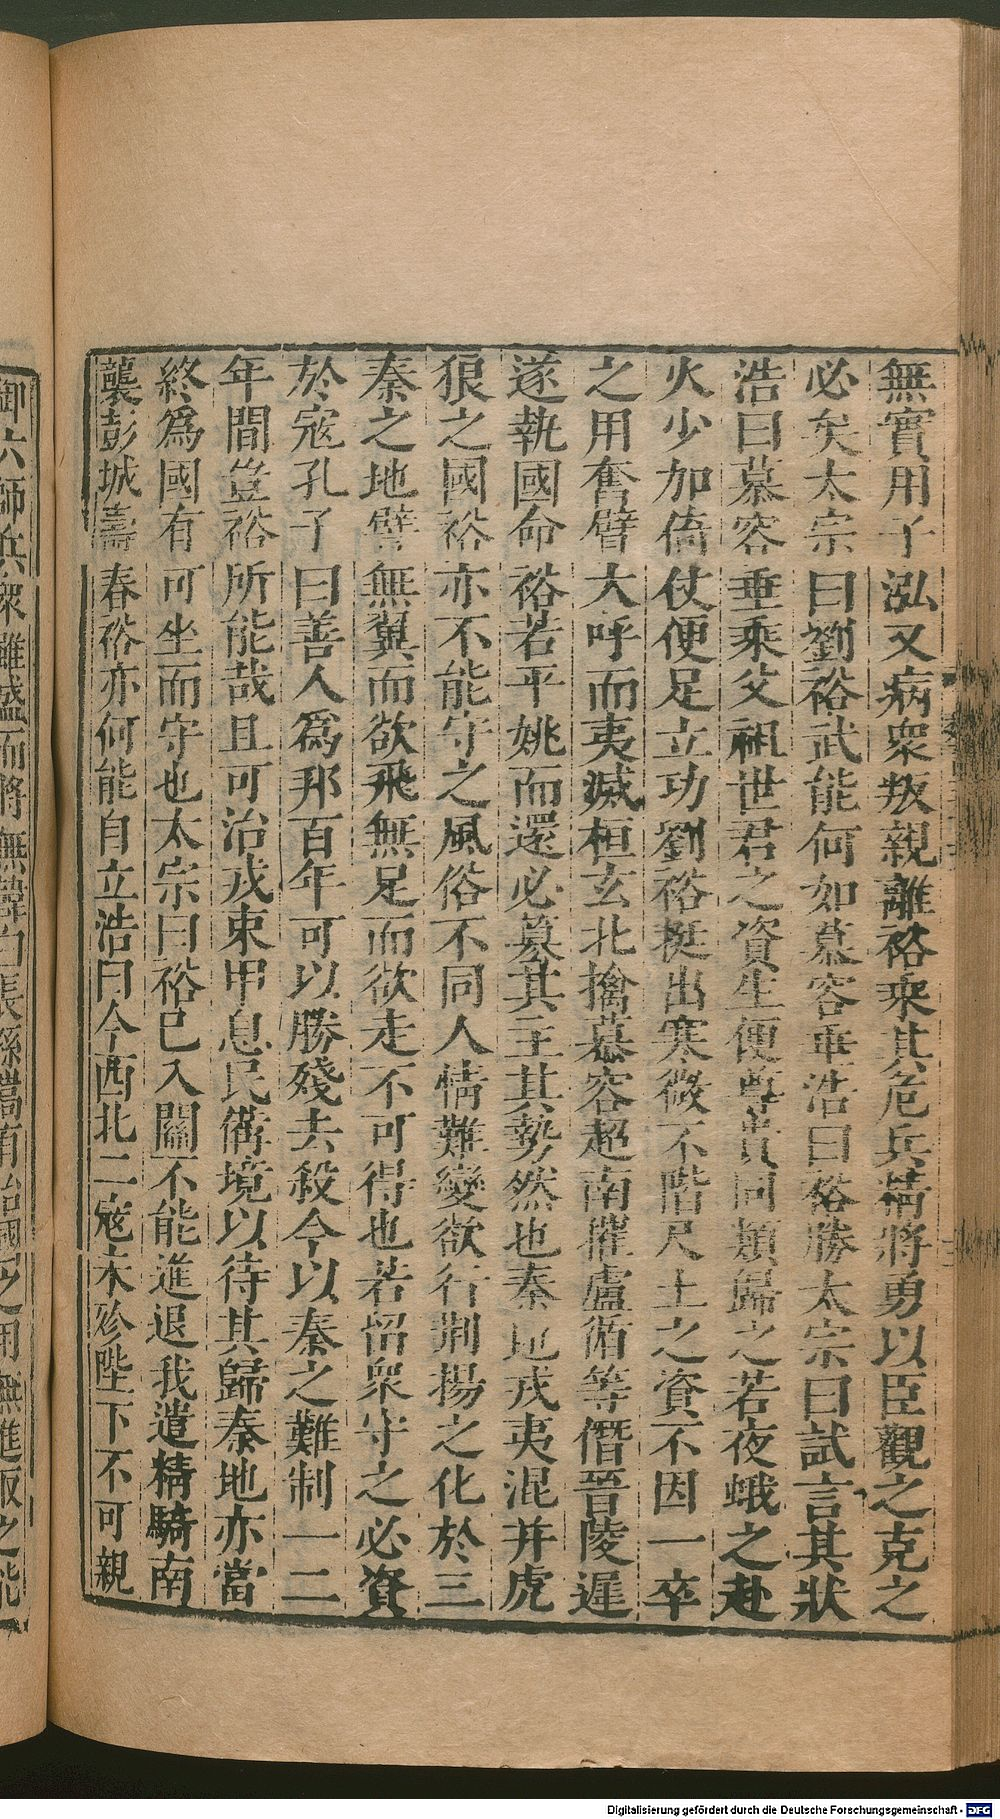 無實用子泓又病衆叛親離裕乘其危兵精將勇以臣觀之克之
必矣太宗曰劉裕武能何如慕容垂浩曰裕勝太宗曰試言其狀
浩曰慕容垂乘父祖世君之資生便尊貴同類歸之若夜蛾之赴
火少加倚仗便足立功劉裕挺出寒微不階尺土之資不因一卒
之用奮臂大呼而夷滅桓玄北擒慕容超南摧盧循等僭晉陵遲
遂執國命裕若平姚而還必篡其主其勢然也秦地戎夷混并虎
狼之國裕亦不能守之風俗不同人情難變欲行荆揚之化於三
秦之地譬無翼而欲飛無足而欲走不可得也若留衆守之必資
於寇孔子曰善人爲邦百年可以勝殘去殺今以秦之難制一二
年間豈裕所能哉且可治戎束甲息民備境以待其歸秦地亦當
終爲國有可坐而守也太宗曰裕已入關不能進退我遣精騎南
襲彭城壽春裕亦何能自立浩曰今西北二寇未殄陛下不可親
御六師兵衆雖盛而將無韓白長孫嵩有治國之用無進取之能
Digitalisierung gefördert durch die Deutsche Forschungsgemeinschaft - DFG